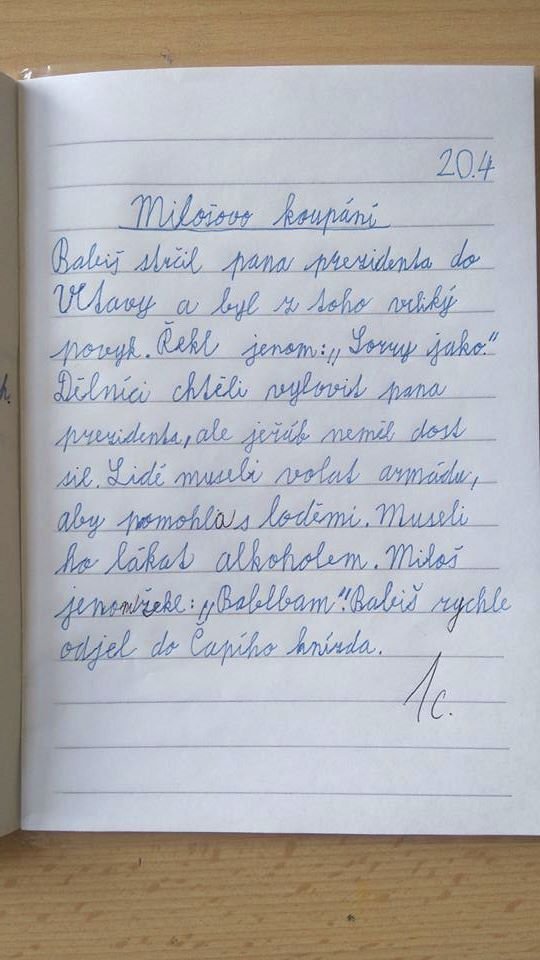 20.4
Milošovo koupání
Babiš strčil pana prezidenta do
Vltavy a byl z toho veliký
povyk. Řekl jenom: „Sorry jako."
Dělníci chtěli vylovit pana
prezidenta, ale jeřáb neměl dost
sil. Lidé museli volat armádu,
aby pomohla s loděmi. Museli
ho lákat alkoholem. Miloš
jenom řekl: „Bablbam". Babiš rychle
odjel do Čapího hnízda.
1c.